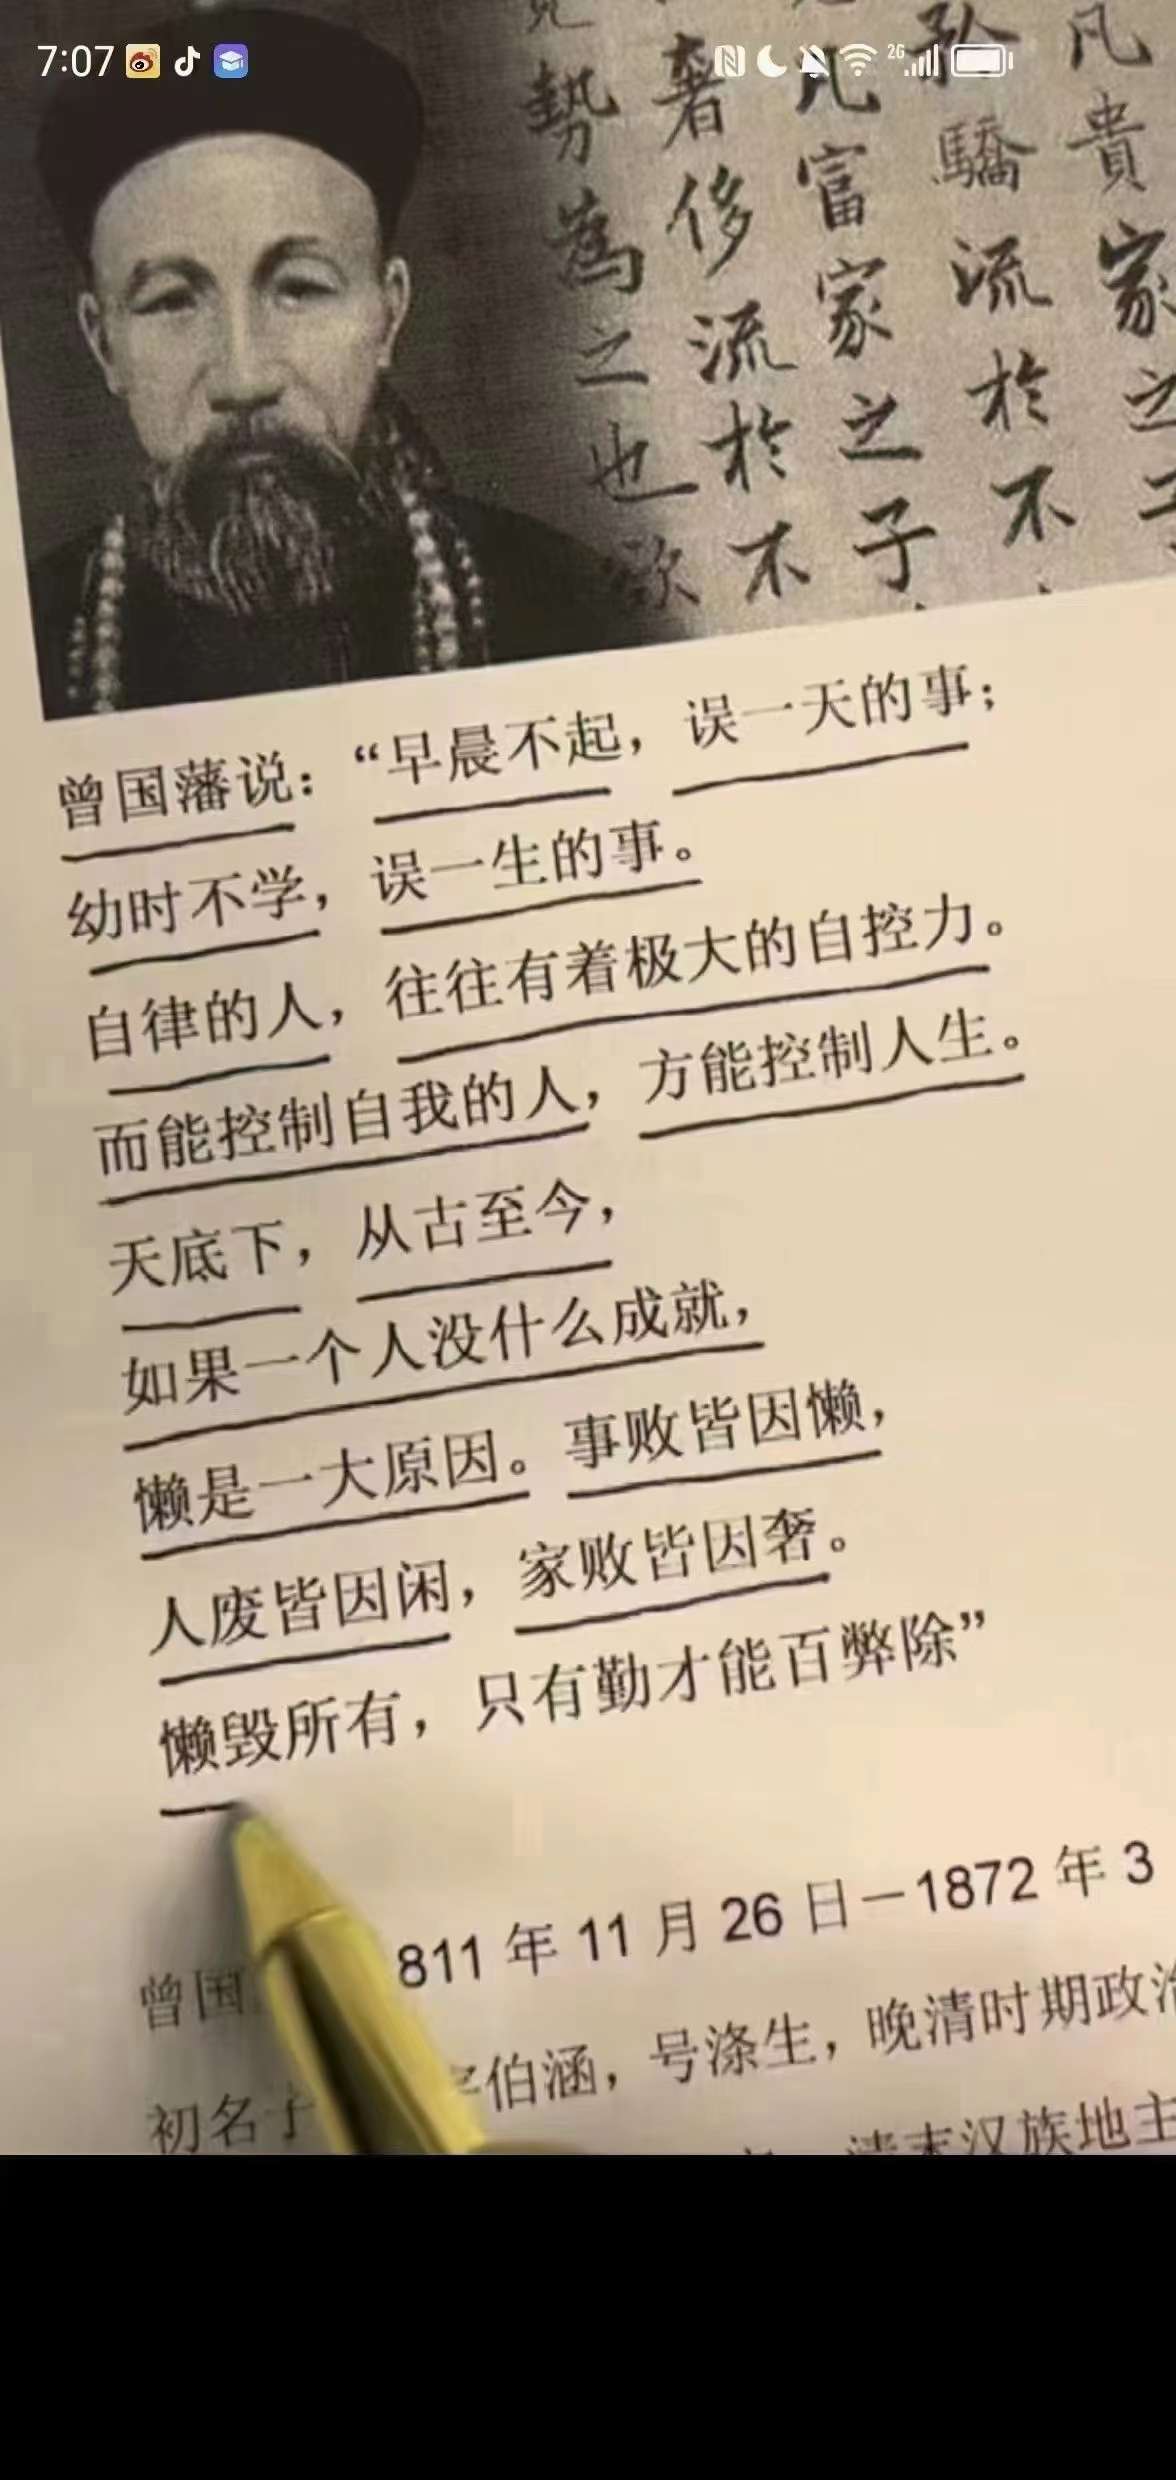 7:07
2G
凡貴家之子
矜驕流於不
凡富家之子
奢侈流於不
勢為之也欲
曾国藩说：“早晨不起，误一天的事；
幼时不学，误一生的事。
自律的人，往往有着极大的自控力。
而能控制自我的人，方能控制人生。
天底下，从古至今，
如果一个人没什么成就，
懒是一大原因。事败皆因懒，
人废皆因闲，家败皆因奢。
懒毁所有，只有勤才能百弊除”
曾国 811 年 11 月 26 日－1872 年 3
初名子 字伯涵，号涤生，晚清时期政治
清末汉族地主